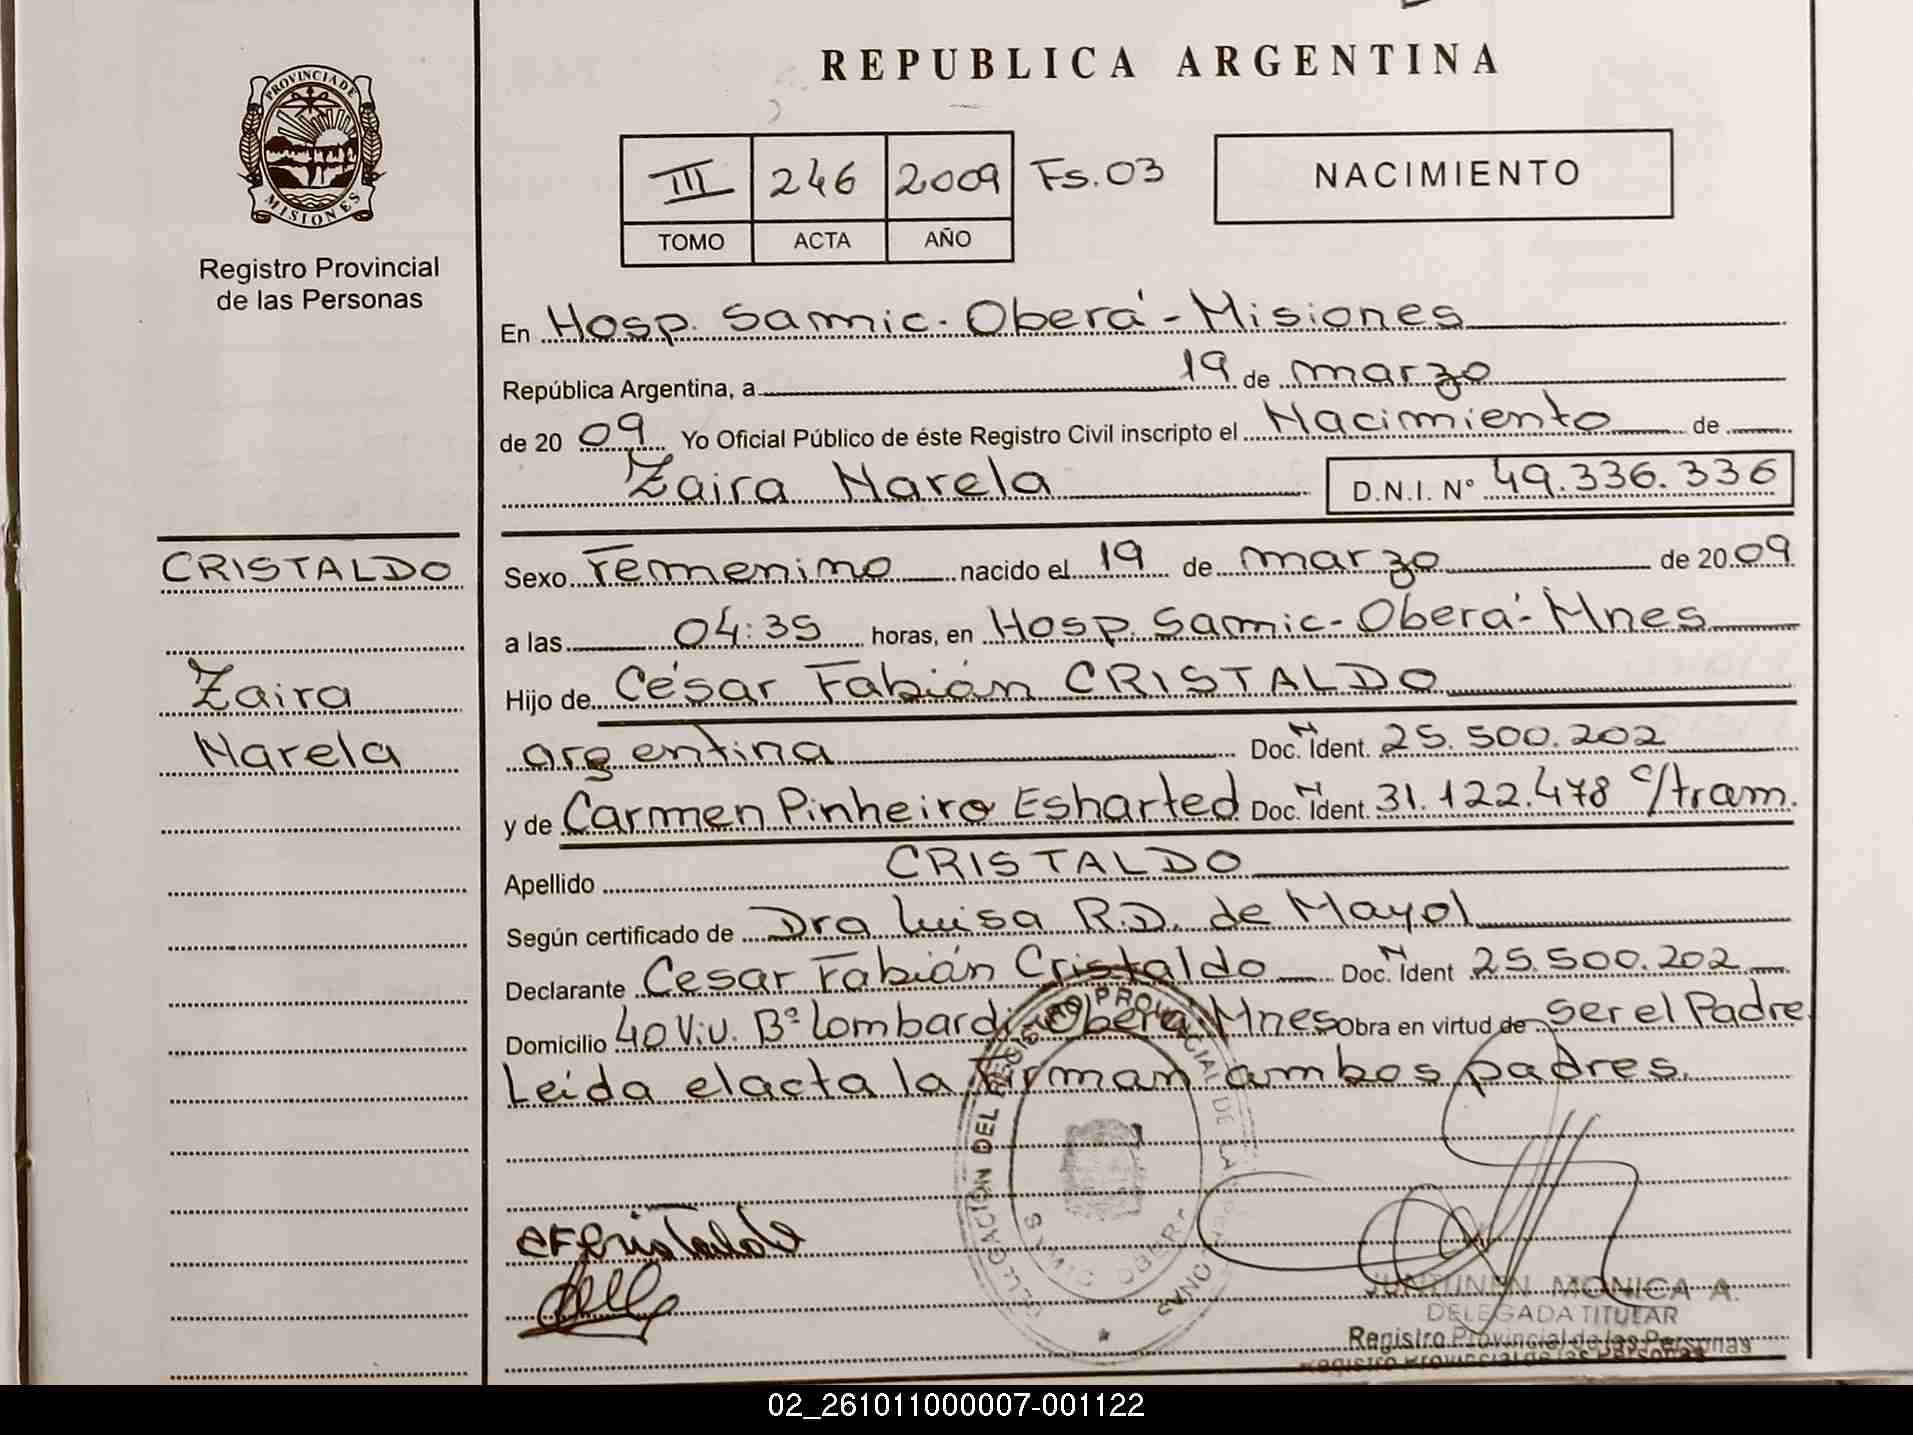 REPUBLICA ARGENTINA
PROVINCIA DE MISIONES
Registro Provincial
de las Personas
III 246 2009 Fs.03
TOMO ACTA AÑO
NACIMIENTO
En Hosp. Samic-Oberá-Misiones
República Argentina, a 19 de marzo
de 20 09 Yo Oficial Público de éste Registro Civil inscripto el Nacimiento de
Zaira Narela D.N.I. N° 49.336.336
CRISTALDO
Zaira
Narela
Sexo Femenino nacido el 19 de marzo de 20 09
a las 04:35 horas, en Hosp. Samic-Oberá-Mnes
Hijo de César Fabián CRISTALDO
argentina Doc. N Ident. 25.500.202
y de Carmen Pinheiro Esharted Doc. N Ident. 31.122.478 c/tram.
Apellido CRISTALDO
Según certificado de Dra Luisa R.D. de Mayol
Declarante Cesar Fabián Cristaldo Doc. N Ident 25.500.202
Domicilio 40 Viv. B° Lombardi Oberá Mnes Obra en virtud de ser el Padre
Leída el acta la firman ambos padres.
CFCristaldo
DELEGACIÓN DEL REGISTRO PROVINCIAL DE LAS PERSONAS
SAMIC OBERA
JUNTUNEN MONICA A.
DELEGADA TITULAR
Registro Provincial de las Personas
02_261011000007-001122